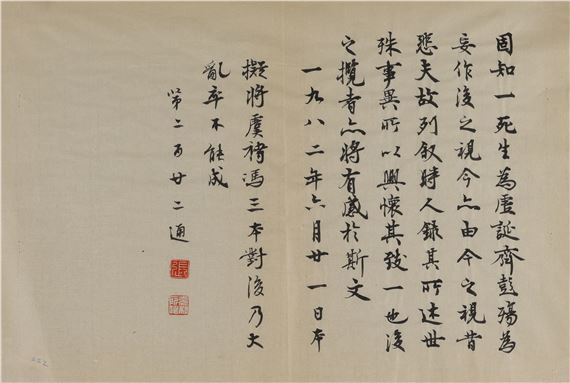 固知一死生為虛誕齊彭殤為
妄作後之視今亦由今之視昔
悲夫故列叙時人錄其所述世
殊事異所以興懷其致一也後
之攬者亦將有感於斯文
一九八二年六月廿一日本
擬將虞褚馮三本對後乃大
亂卒不能成
第二百廿二通